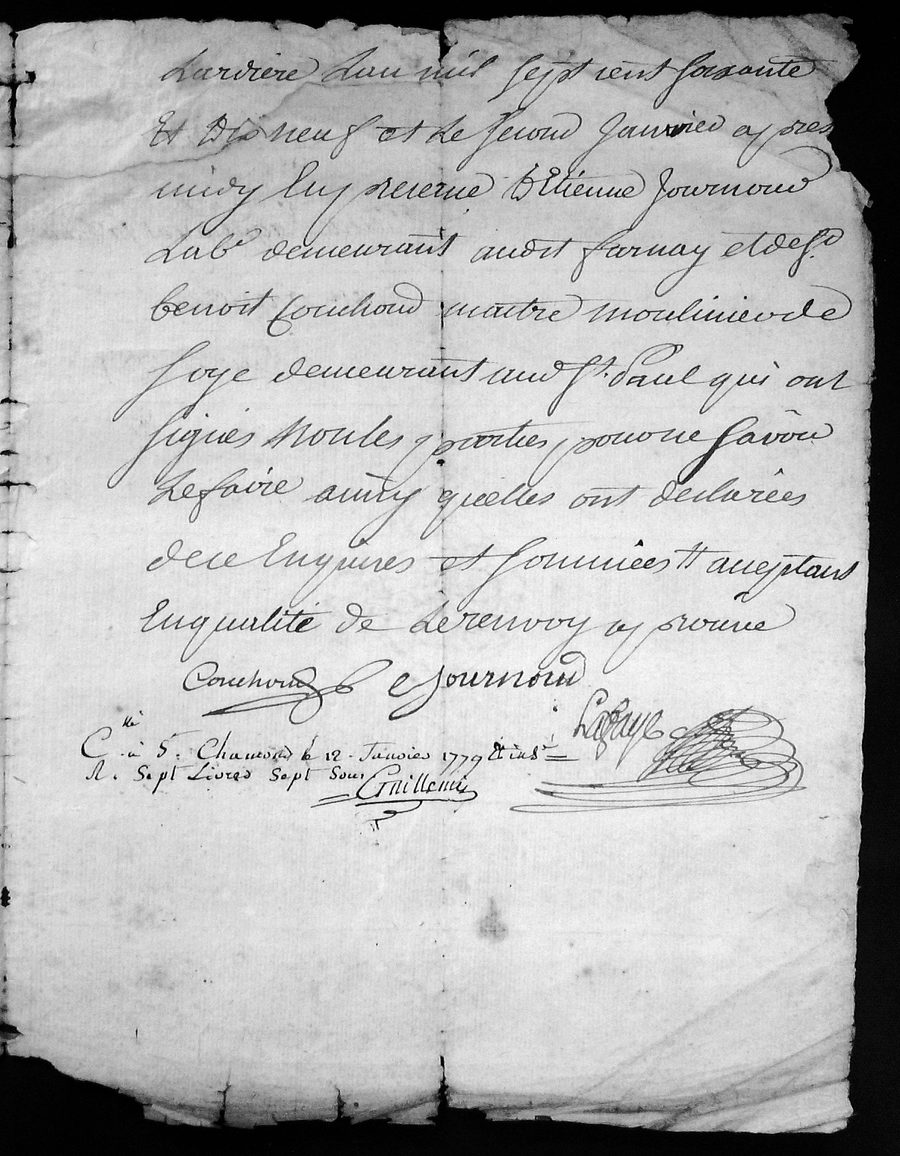 Lardiere Lan mil sept cent soixante
Et Dix neuf et Le second Janvier apres
midy En presence D'Etienne Journoud
Labr demeurant audit farnay et de Sr
benoit Couchoud maitre moulinier de
soye demeurant aud St. Paul qui ont
signés Non les parties pour ne savoir
Le faire ainsy quelles ont declarées
de ce Enquises et sommées // acceptant
En qualité de Le renvoy aprouvé
Couchoud Journoud
Lafaye
Clé à St. Chamond le 12. Janvier 1779 & insé
R. Sept Livres Sept Sous